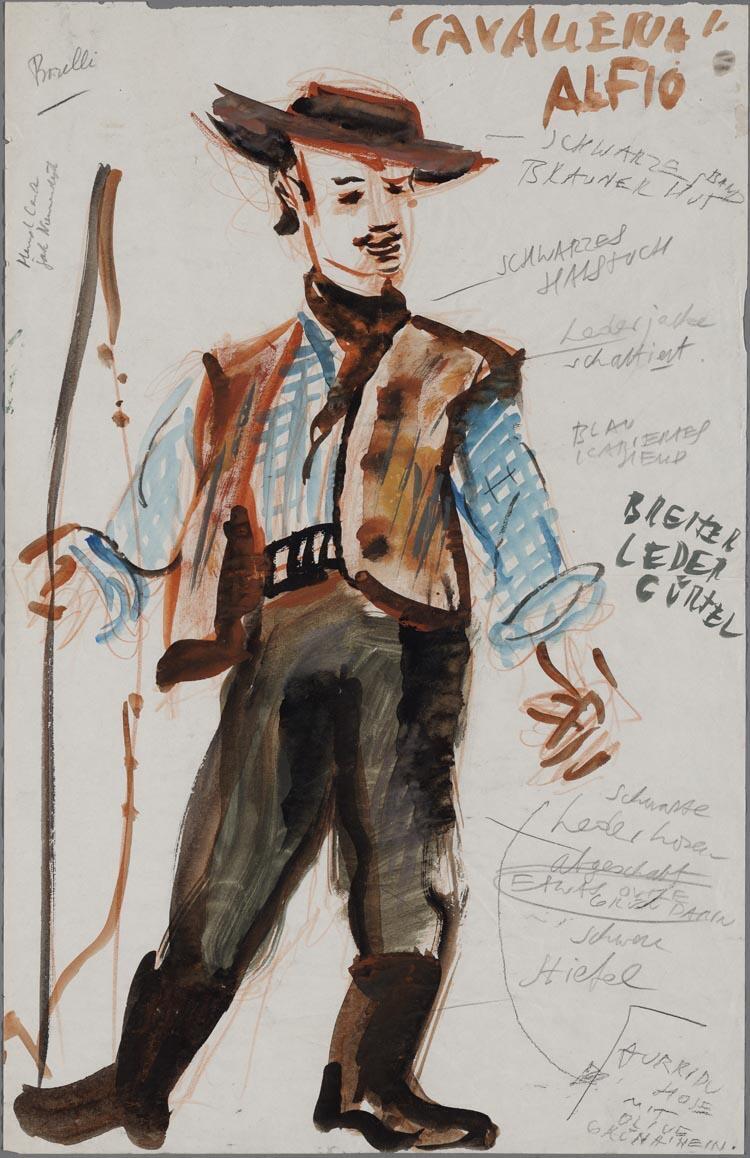 Borelli
"CAVALLERIA"
ALFIO
SCHWARZES BAND
BRAUNER HUT
SCHWARZES
HALSTUCH
Lederjacke
schattiert.
BLAU
KARIERTES
HEMD
BREITER
LEDER
GÜRTEL
schwarze
Lederhosen
abgeschabt
ETWAS OLIVE
GRÜN DARIN
schwere
Stiefel
HOSE
MIT
OLIVE